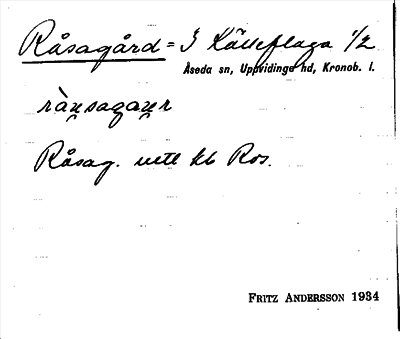 Råsagård = I Källeflaga 1/2
Åseda sn, Uppvidinge hd, Kronob. l.
ràu̯saga̯u̯r
Råsag. uttl kb Ros.
FRITZ ANDERSSON 1934